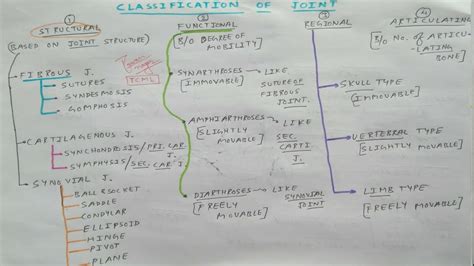 CLASSIFICATION OF JOINT
① STRUCTURAL
(BASED ON JOINT STRUCTURE)
→ FIBROUS J.
→ SUTURES
→ SYNDESMOSIS
→ GOMPHOSIS
→ CARTILAGENOUS J.
→ SYNCHONDROSIS/PRI. CAR. J.
→ SYMPHYSIS/SEC. CAR. J.
→ SYNOVIAL J.
→ BALL & SOCKET
→ SADDLE
→ CONDYLAR
→ ELLIPSOID
→ HINGE
→ PIVOT
→ PLANE
② FUNCTIONAL
[B/O DEGREE OF
MOBILITY]
→ SYNARTHROSES → LIKE
[IMMOVABLE]
SUTURE OF
FIBROUS
JOINT.
→ AMPHIARTHROSES → LIKE
[SLIGHTLY
MOVABLE]
SEC.
CARTI
J.
→ DIARTHROSES → LIKE
[FREELY
MOVABLE]
SYNOVIAL
JOINT
③ REGIONAL
→ SKULL TYPE
[IMMOVABLE]
→ VERTEBRAL TYPE
[SLIGHTLY MOVABLE]
→ LIMB TYPE
[FREELY MOVABLE]
④ ARTICULATING
[B/O NO. OF ARTICU-
LATING
BONE]